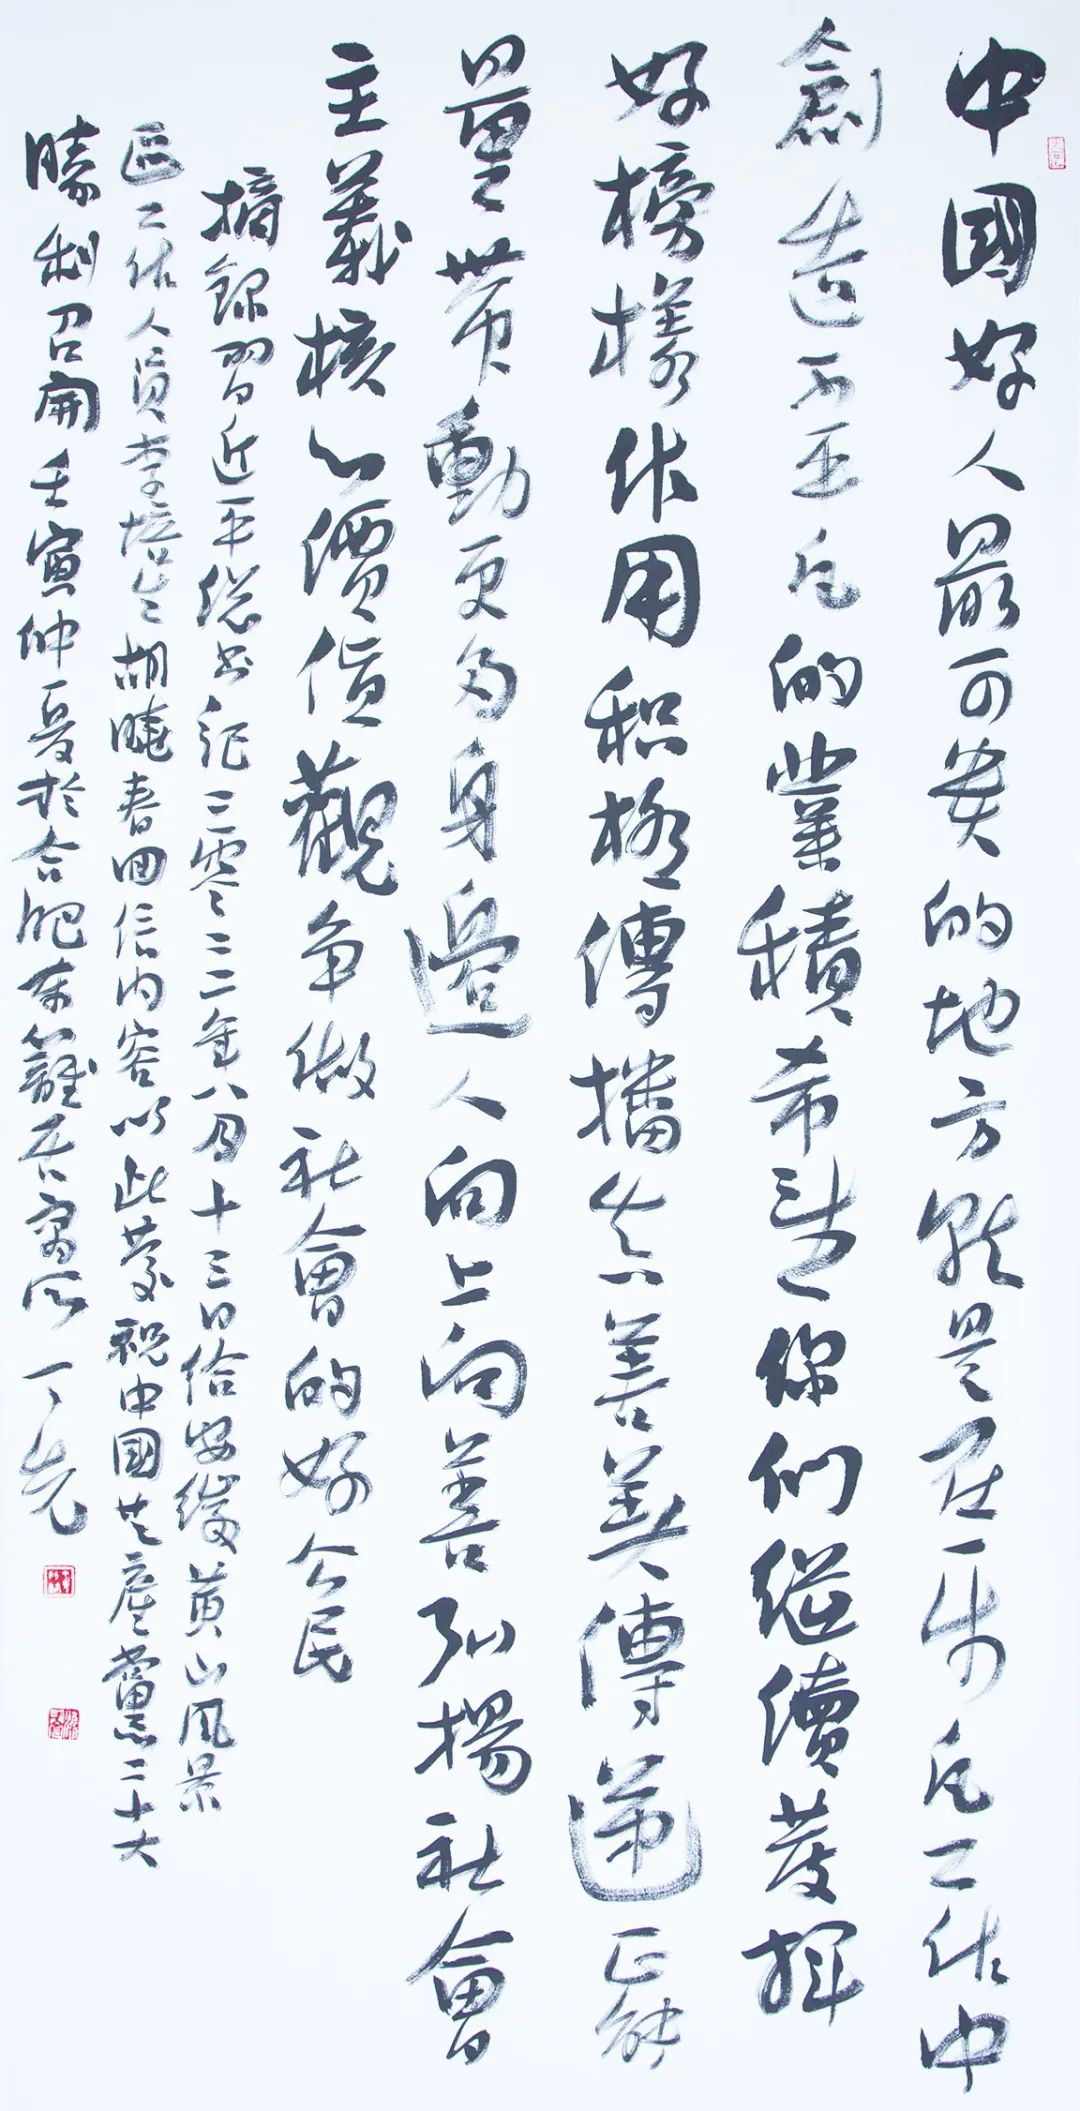 中國好人最可貴的地方就是在平凡工作中
創造不平凡的業積希望你們繼續發揮
好榜樣作用积極傳播真善美傳遞正能
量帶動更多身邊人向上向善弘揚社會
主義核心價值觀争做社會的好公民
摘錄習近平總書記二零二二年八月十三日給安徽黄山風景
區工作人員李培生胡曉春回信内容以此慶祝中國共産黨二十大
勝利召開壬寅仲夏於合肥東籬居寓所丁先